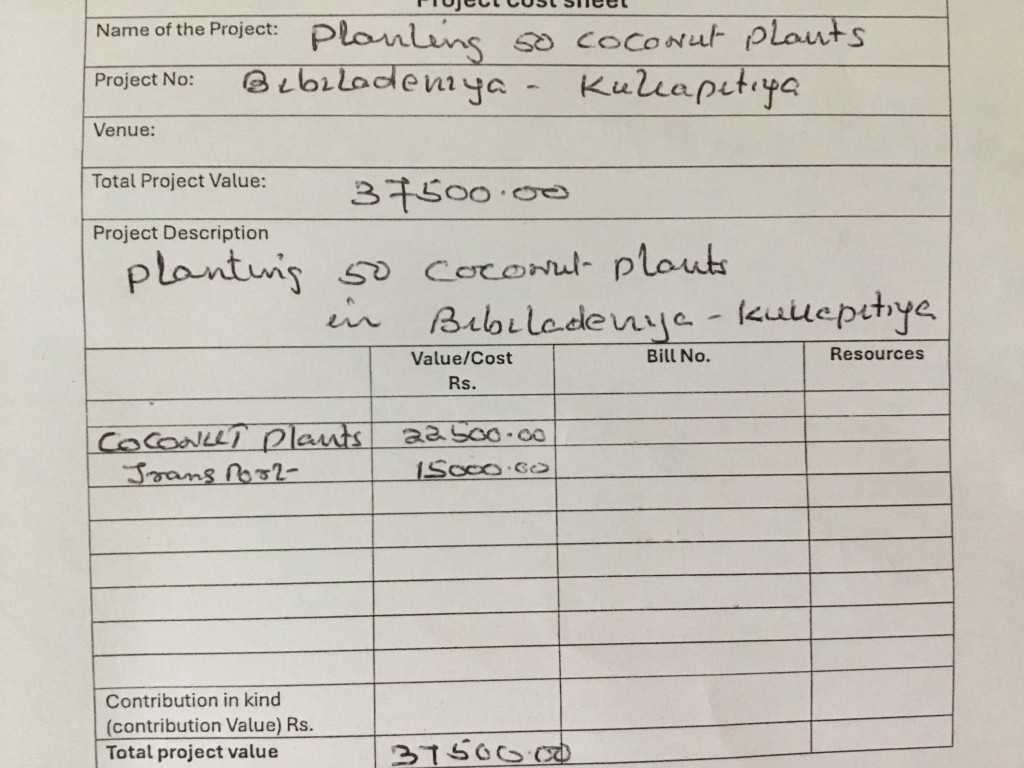 Project Cost Sheet
Name of the Project: Planting 50 coconut plants
Project No: Bibiladeniya - Kuliapitiya
Venue:
Total Project Value: 37500.00
Project Description
planting 50 coconut plants
in Bibiladeniya - Kuliapitiya
Value/Cost Rs. Bill No. Resources
COCONUT Plants 22500.00
Transport 15000.00
Contribution in kind
(contribution Value) Rs.
Total project value 37500.00